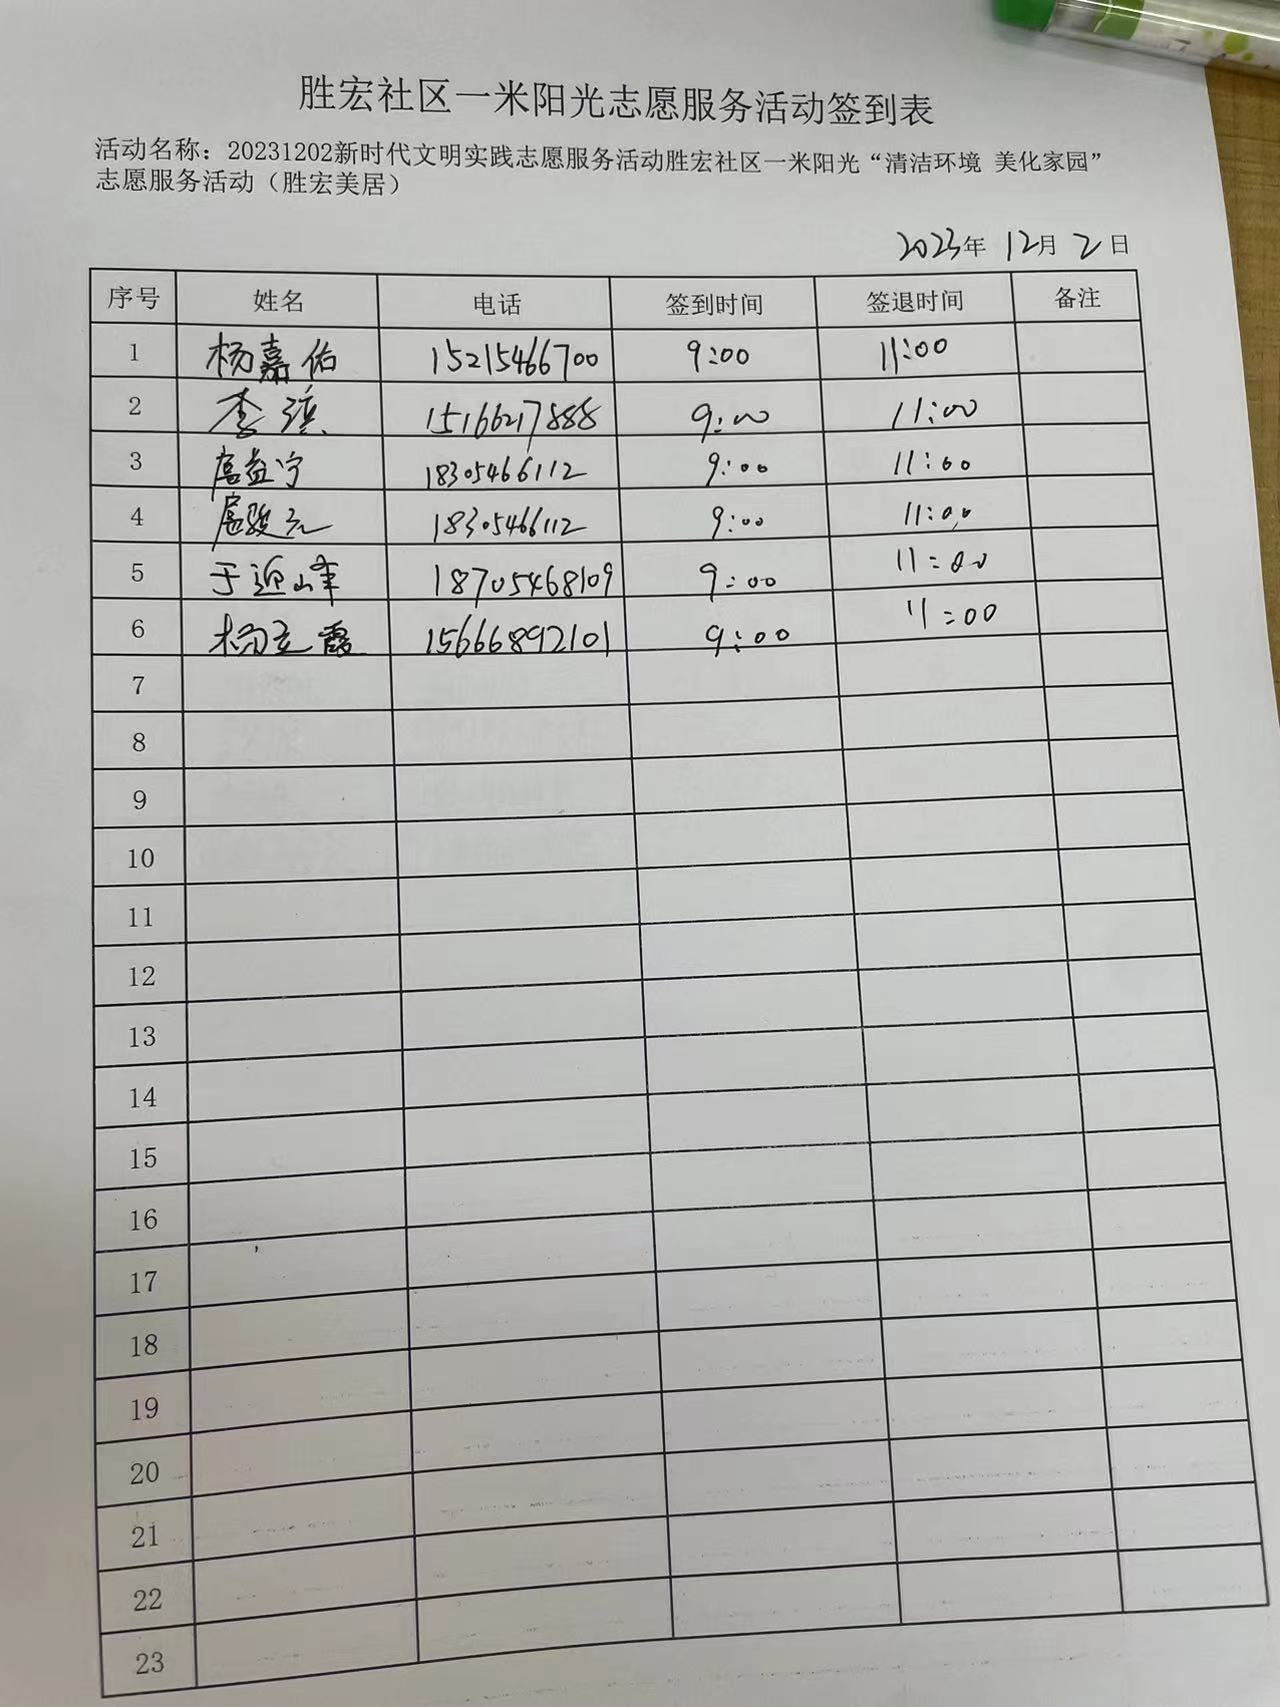 胜宏社区一米阳光志愿服务活动签到表
活动名称：20231202新时代文明实践志愿服务活动胜宏社区一米阳光“清洁环境 美化家园”
志愿服务活动（胜宏美居）
2023年 12月 2日
序号 姓名 电话 签到时间 签退时间 备注
1 杨嘉佑 15215466700 9:00 11:00
2 李 15166217888 9:00 11:00
3 益宁 18305466112 9:00 11:00
4 骏元 18305466112 9:00 11:00
5 于迎峰 18705468109 9:00 11:00
6 杨立霞 15666892101 9:00 11:00
7
8
9
10
11
12
13
14
15
16
17
18
19
20
21
22
23